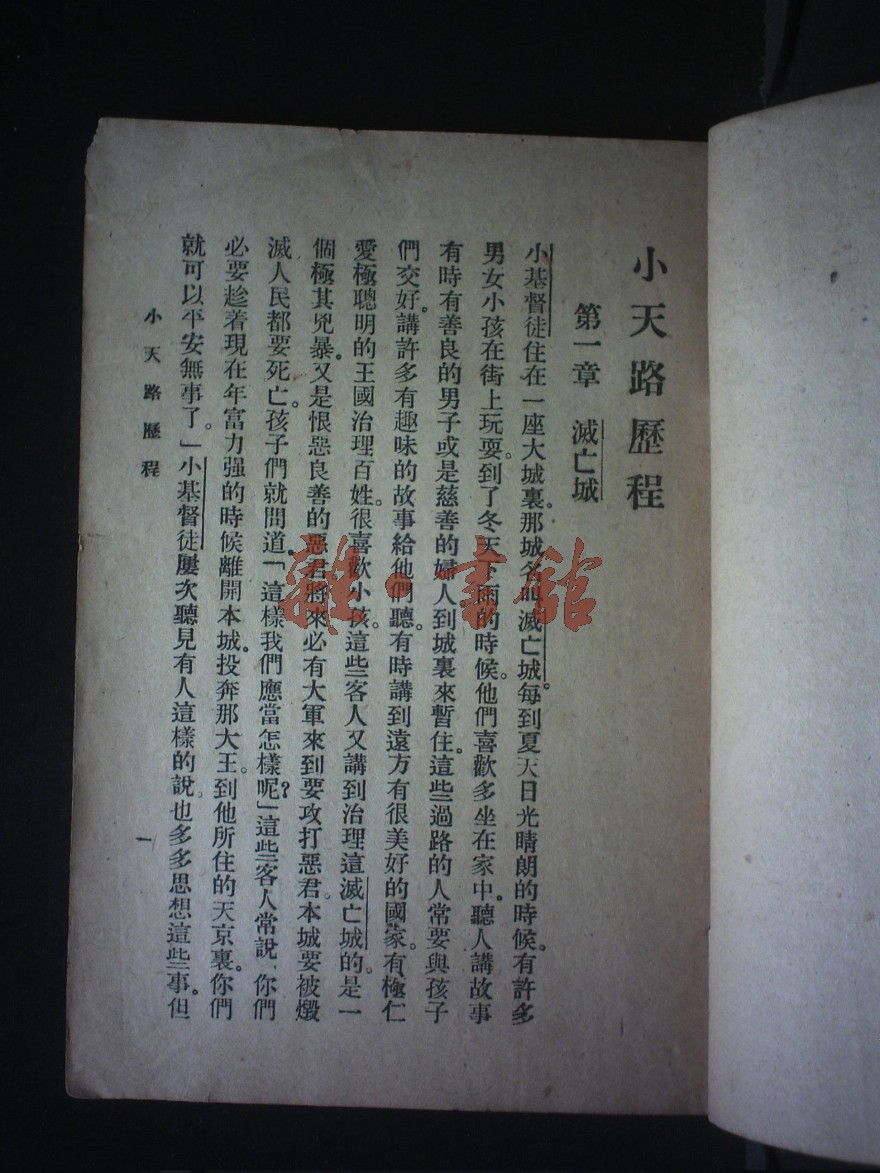 小天路歷程
第一章 滅亡城
小基督徒住在一座大城裏。那城名叫滅亡城。每到夏天日光晴朗的時候。有許多
男女小孩在街上玩耍。到了冬天下雨的時候。他們喜歡多坐在家中。聽人講故事
有時有善良的男子或是慈善的婦人到城裏來暫住。這些過路的人常要與孩子
們交好。講許多有趣味的故事給他們聽。有時講到遠方有很美好的國。蒙有極仁
愛極聰明的王國治理百姓。很喜歡小孩。這些客人又講到治理這滅亡城的。是一
個極其兇暴。又是恨惡良善的惡君。將來必有大軍來到要攻打惡君。本城要被燬
滅人民都要死亡。孩子們就問道。「這樣我們應當怎樣呢?」這些客人常說、你們
必要趁着現在年富力强的時候離開本城。投奔那大王。到他所住的天京裏。你們
就可以平安無事了。」小基督徒屢次聽見有人這樣的說。也多多思想這些事。但
小天路歷程
一
雜·書館